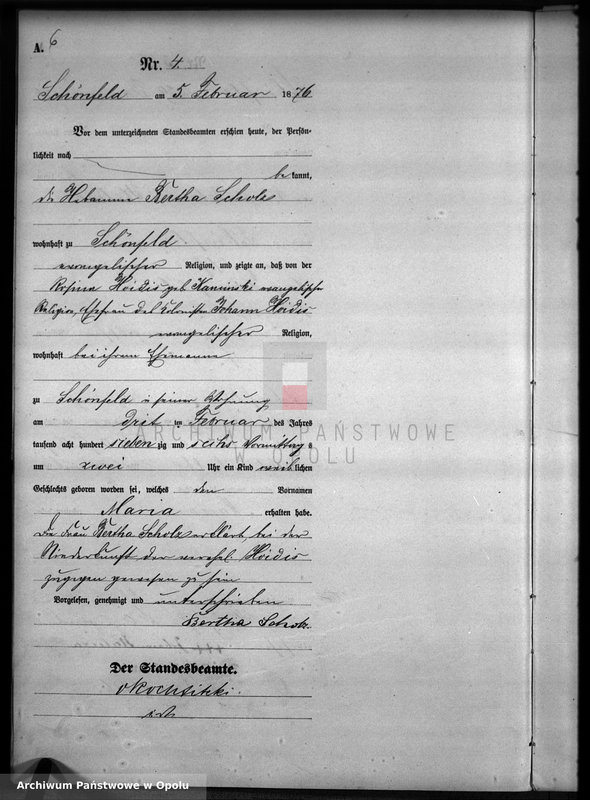 A. 6
Nr. 4.
Schönfeld am 5. Februar 1876
Vor dem unterzeichneten Standesbeamten erschien heute, der Persön-
lichkeit nach
bekannt,
die Hebamme Bertha Scholz
wohnhaft zu Schönfeld
evangelischer Religion, und zeigte an, daß von der
Rosina Hoidis geb. Kaminski evangelischer
Religion, Ehefrau des Kolonisten Johann Hoidis
evangelischer Religion,
wohnhaft bei ihrem Ehemanne
zu Schönfeld in seiner Wohnung
am Februar des Jahres
tausend acht hundert siebenzig und sechs Vormittags
um zwei Uhr ein Kind weiblichen
Geschlechts geboren worden sei, welches den Vornamen
Maria erhalten habe.
Die Frau Bertha Scholz erklärt, bei der
Niederkunft der verehel. Hoidis
zugegen gewesen zu sein
Vorgelesen, genehmigt und unterschrieben
Bertha Scholz.
Der Standesbeamte.
ARCHIWUM PAŃSTWOWE
W OPOLU
Archiwum Państwowe w Opolu